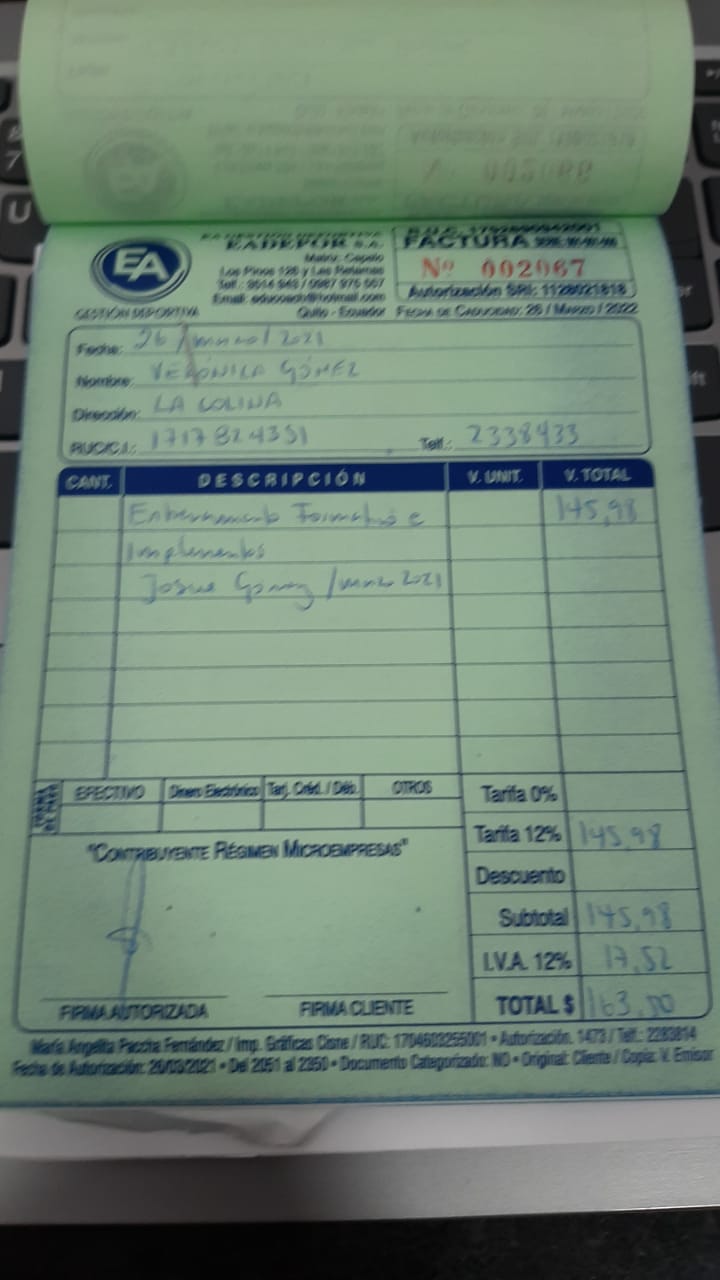 EA
GESTIÓN DEPORTIVA
EADEPOR S.A.
Matriz: Capelo
Los Pinos 126 y Las Retamas
Quito - Ecuador
FACTURA
Nº 002067
Autorización SRI: 1128021818
Fecha de Caducidad: 26 / Marzo / 2022
Fecha: 26 / marzo / 2021
Nombre: VERÓNICA GÓMEZ
Dirección: LA COLINA
RUC/C.I.: 1717824351 Telf.: 2338433
CANT. DESCRIPCIÓN V. UNIT. V. TOTAL
Entrenamiento Formativo e 145,98
Implementos
Josue Gómez / marzo 2021
FORMA DE PAGO EFECTIVO Dinero Electrónico Tarj. Créd. / Déb. OTROS
Tarifa 0%
Tarifa 12% 145,98
"Contribuyente Régimen Microempresas"
Descuento
Subtotal 145,98
I.V.A. 12% 17,52
TOTAL $ 163,50
FIRMA AUTORIZADA FIRMA CLIENTE
María Angelita Paccha Fernández / Imp. Gráficas Cisne / RUC: 1704603255001 • Autorización. 1473 / Telf.: 2283814
Fecha de Autorización: 26/03/2021 • Del 2051 al 2350 • Documento Categorizado: NO • Original: Cliente / Copia: V. Emisor